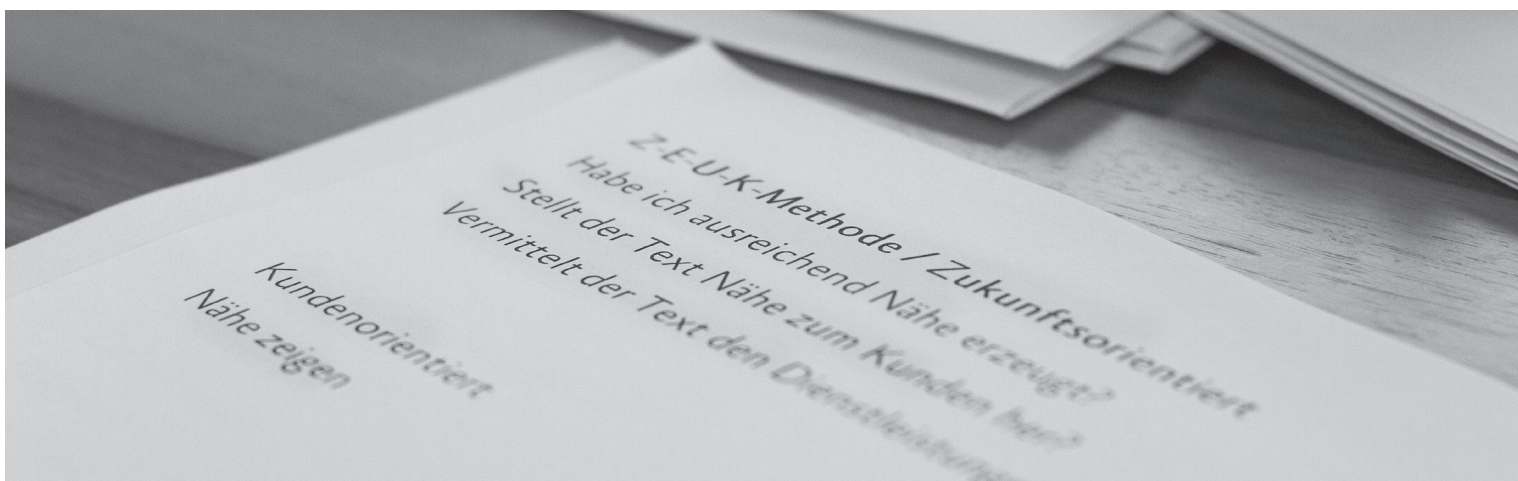 Z-E-U-K-Methode / Zukunftsorientiert
Habe ich ausreichend Nähe erzeugt?
Stellt der Text Nähe zum Kunden her?
Vermittelt der Text den Dienstleistungs
Kundenorientiert
Nähe zeigen